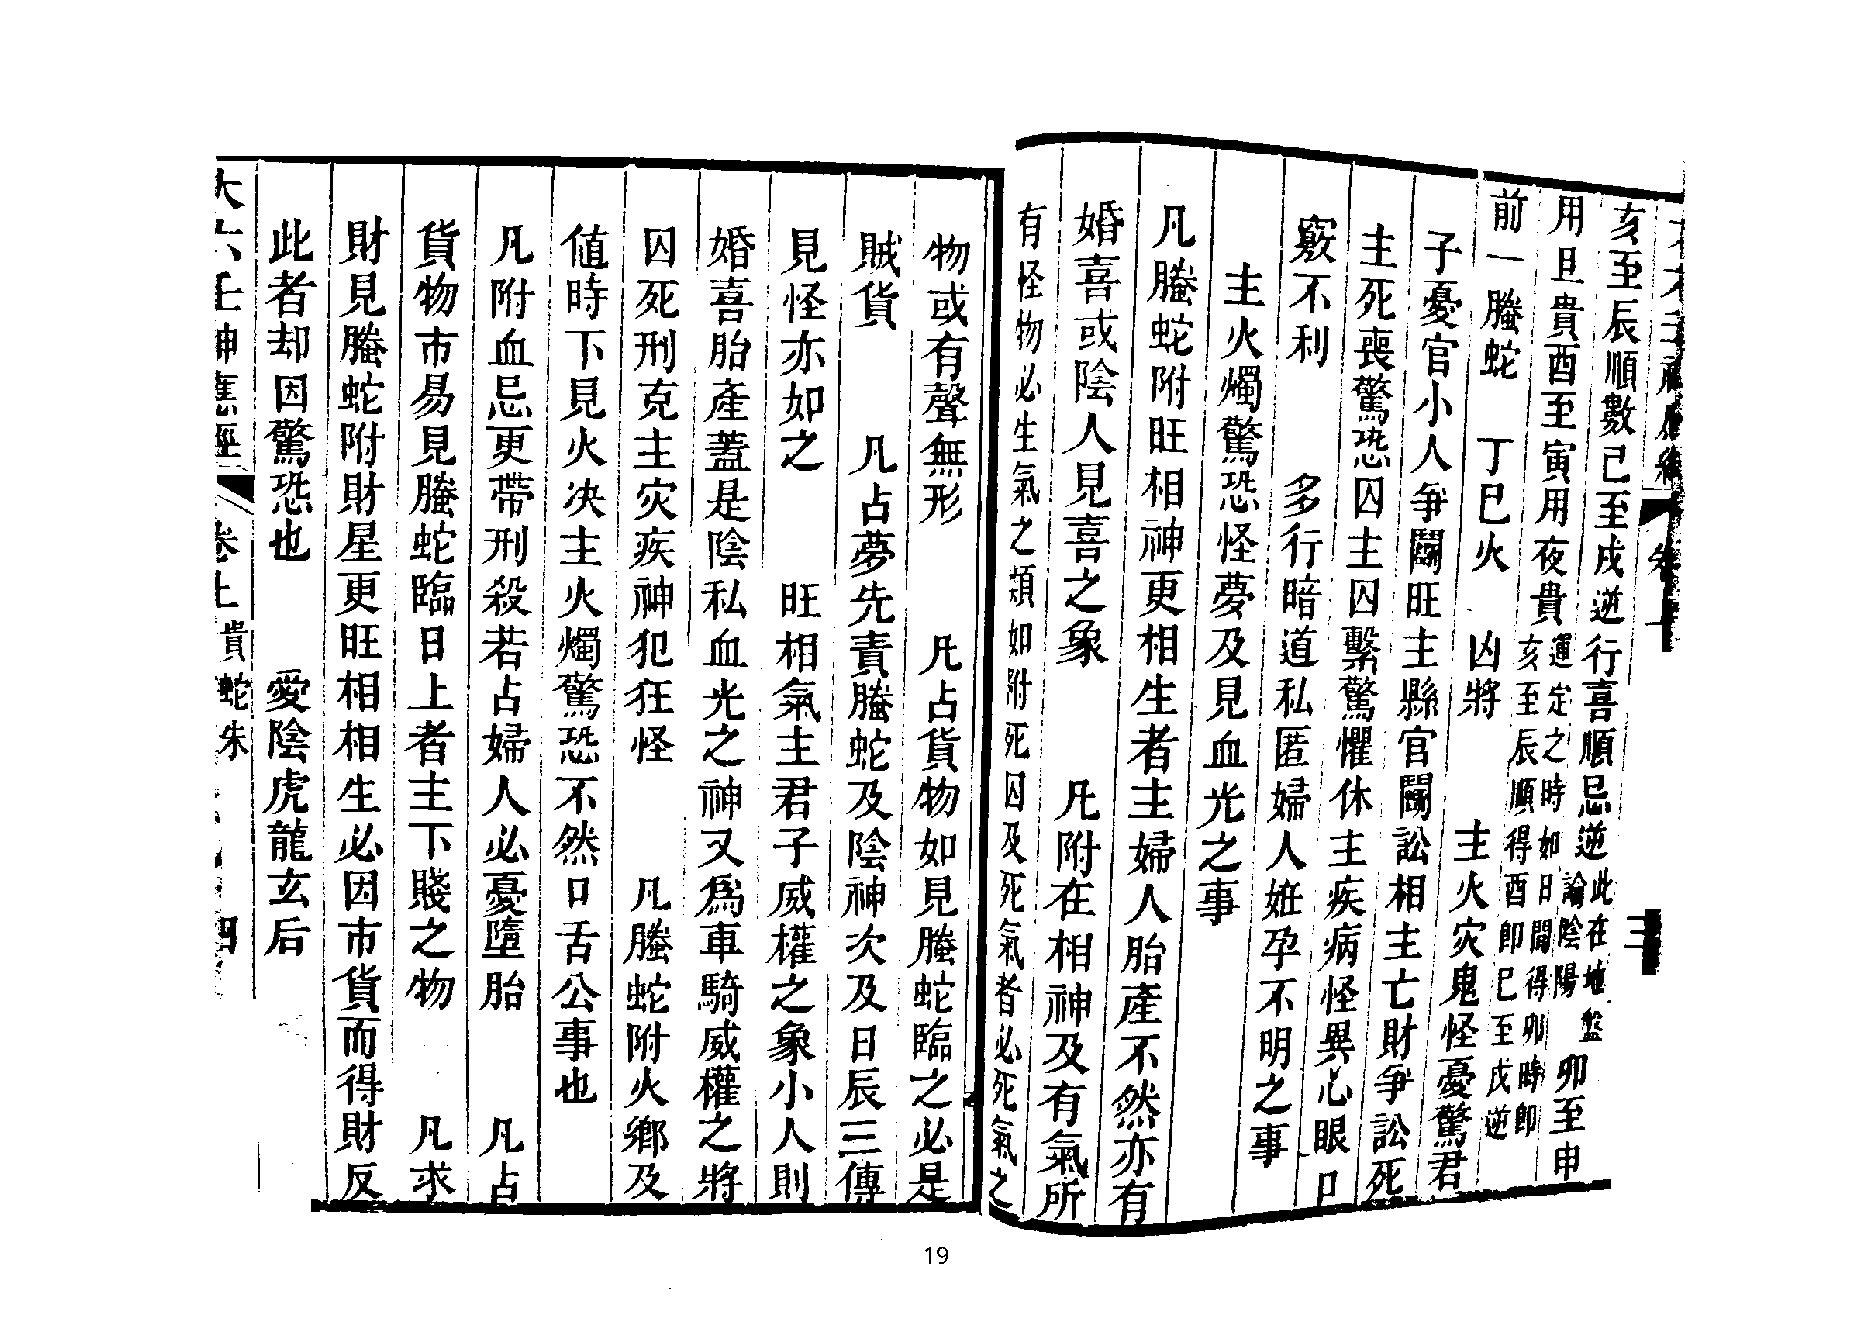 亥至辰順數巳至戌逆行喜順忌逆此在地盤論陰陽
用旦貴酉至寅用夜貴運定之時如日閒得卯時即亥至辰順得酉即巳至戌逆卯至申
前一螣蛇　丁巳火　凶將　主火灾鬼怪憂驚君
子憂官小人爭鬭旺主縣官鬭訟相主亡財爭訟死
主死喪驚恐囚主囚繫驚懼休主疾病怪異心眼口
竅不利　多行暗道私匿婦人妊孕不明之事
主火燭驚恐怪夢及見血光之事
凡螣蛇附旺相神更相生者主婦人胎產不然亦有
婚喜或陰人見喜之象　凡附在相神及有氣所
有怪物必生氣之類如附死囚及死氣者必死氣之
物或有聲無形　凡占貨物如見螣蛇臨之必是
賊貨　凡占夢先責螣蛇及陰神次及日辰三傳
見怪亦如之　旺相氣主君子威權之象小人則
婚喜胎產蓋是陰私血光之神又爲車騎威權之將
囚死刑克主灾疾神犯狂怪　凡螣蛇附火鄉及
値時下見火决主火燭驚恐不然口舌公事也
凡附血忌更帶刑殺若占婦人必憂墮胎　凡占
貨物市易見螣蛇臨日上者主下賤之物　凡求
財見螣蛇附財星更旺相相生必因市貨而得財反
此者却因驚恐也　愛陰虎龍玄后
大六壬神應經　卷上　貴蛇朱　四
19